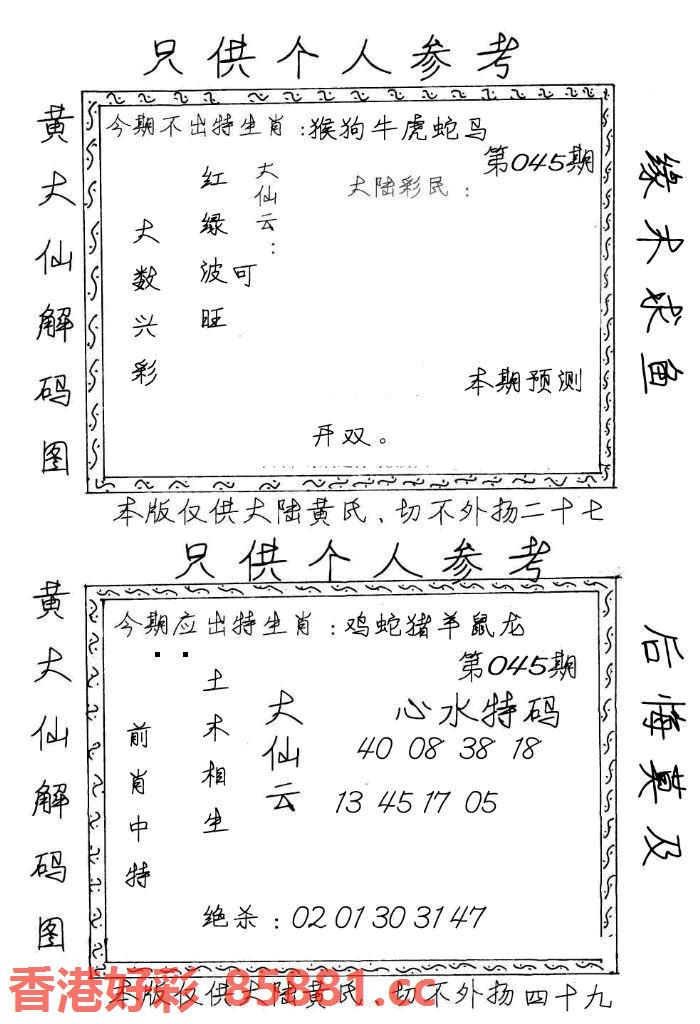 只供个人参考
黄大仙解码图
今期不出特生肖：猴狗牛虎蛇马
第045期
大陆彩民：
大仙云：
红绿波可旺
大数兴彩
本期预测
开双。
缘木求鱼
本版仅供大陆黄氏、切不外扬二十七
只供个人参考
黄大仙解码图
今期应出特生肖：鸡蛇猪羊鼠龙
第045期
心水特码
大仙云
土木相生
前肖中特
40 08 38 18
13 45 17 05
绝杀：02 01 30 31 47
后悔莫及
本版仅供大陆黄氏、切不外扬四十九
香港好彩 85881.cc